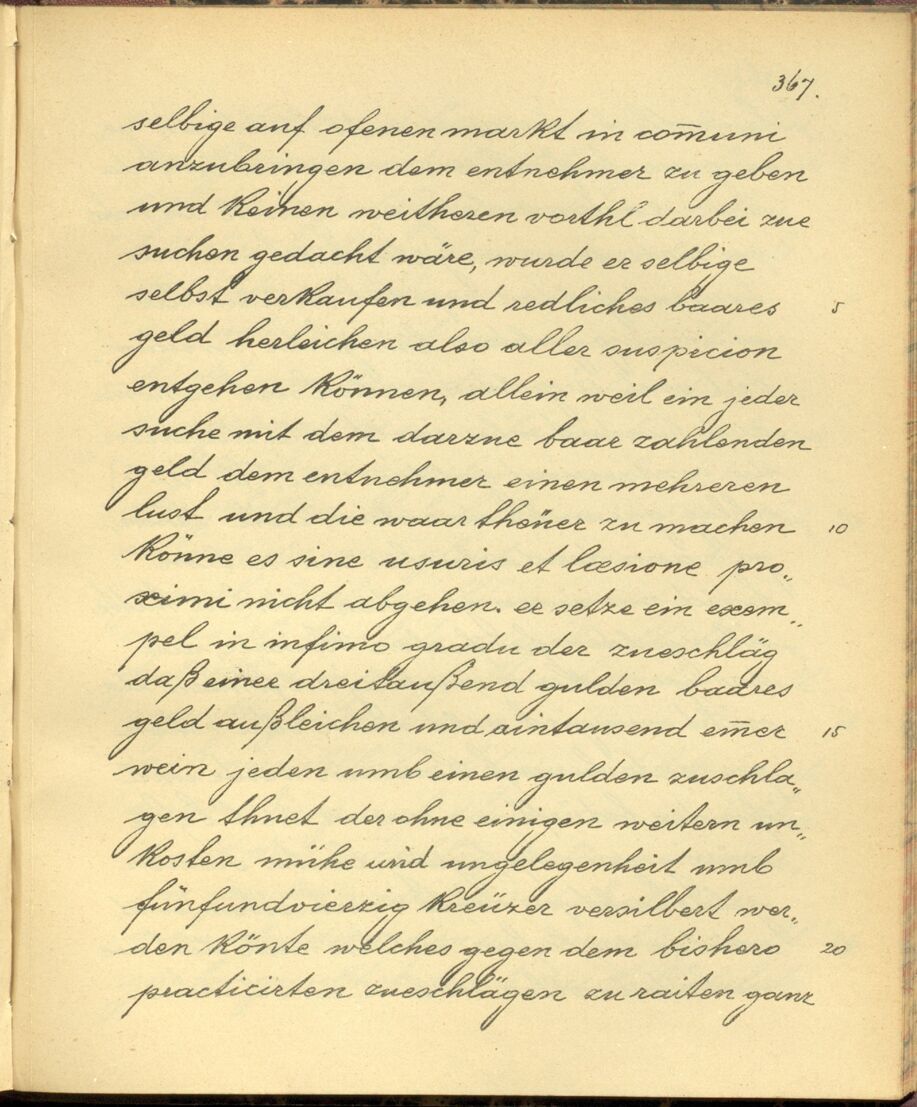 367.
selbige auf ofenen markt in com̄uni
anzubringen dem entnehmer zu geben
und keinen weitheren vorthl darbei zue
suchen gedacht wäre, wurde er selbige
selbst verkaufen und redliches baares 5
geld herleichen also aller suspicion
entgehen können, allein weil ein jeder
suche mit dem darzue baar zahlenden
geld dem entnehmer einen mehreren
lust und die waar theüer zu machen 10
könne es sine usuris et læsione pro„
ximi nicht abgehen. er setze ein exem„
pel in infimo gradu der zueschläg
daß einer dreitaußend gulden baares
geld außleichen und aintausend em̄er 15
wein jeden umb einen gulden zuschla„
gen thuet der ohne einigen weitern un„
kosten mühe und ungelegenheit umb
fünfundvierzig kreüzer versilbert wer„
den könte welches gegen dem bishero 20
practicirten zueschlägen zu raiten ganz